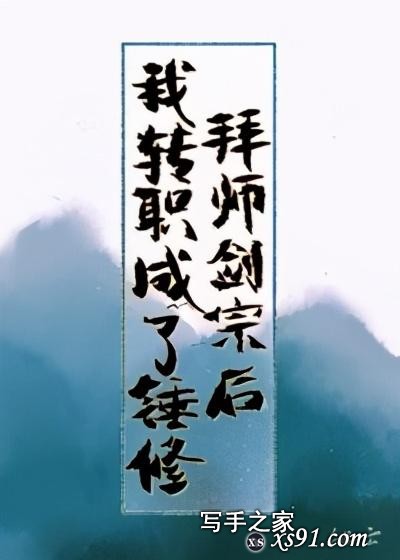 拜师剑宗后
我转职成了锤修
写手之家
xs xs91.com